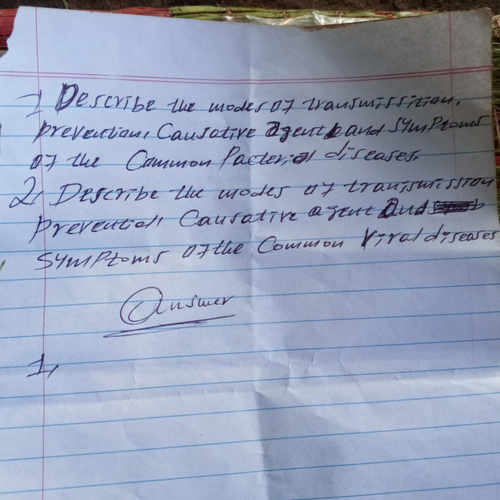 1, Describe the modes of transmissition,
prevention, Causative Agent and Symptoms
of the Common Pacterial diseases.
2, Describe the modes of transmission
prevention, Causative agent and
symptoms of the Common Viral diseases
Answer
1,